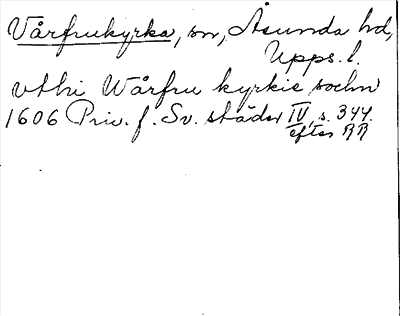 Vårfrukyrka, sn, Åsunda hd,
Upps. l.
vthi Wårfru kyrkie sochn
1606 Priv. f. Sv. städer IV, s. 344.
efter RR